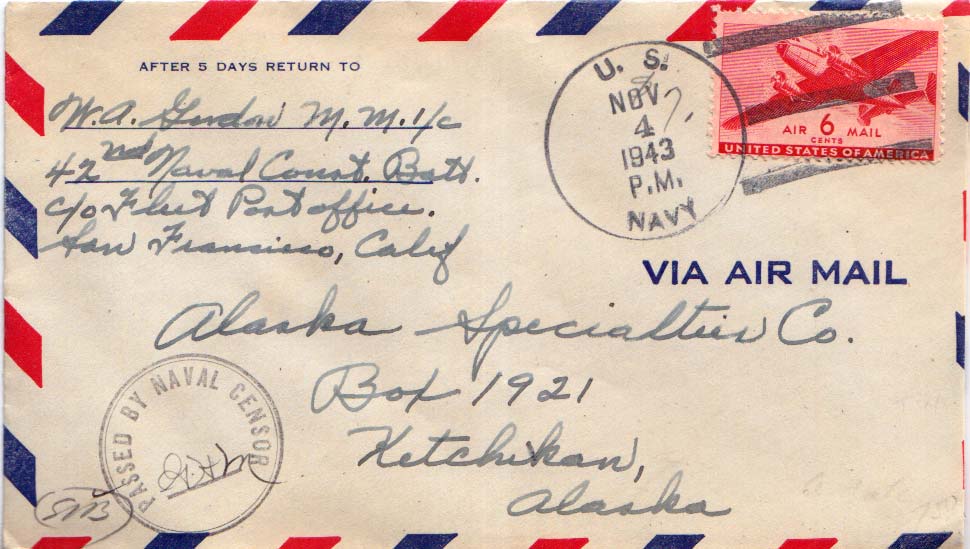 AFTER 5 DAYS RETURN TO
W.A. Gordon M.M.1/c
42nd Naval Const. Batt.
c/o Fleet Post office.
San Francisco, Calif
U. S.
NOV
4
1943
P.M.
NAVY
AIR 6 MAIL
CENTS
UNITED STATES OF AMERICA
VIA AIR MAIL
Alaska Specialties Co.
Box 1921
Ketchikan,
Alaska
PASSED BY NAVAL CENSOR